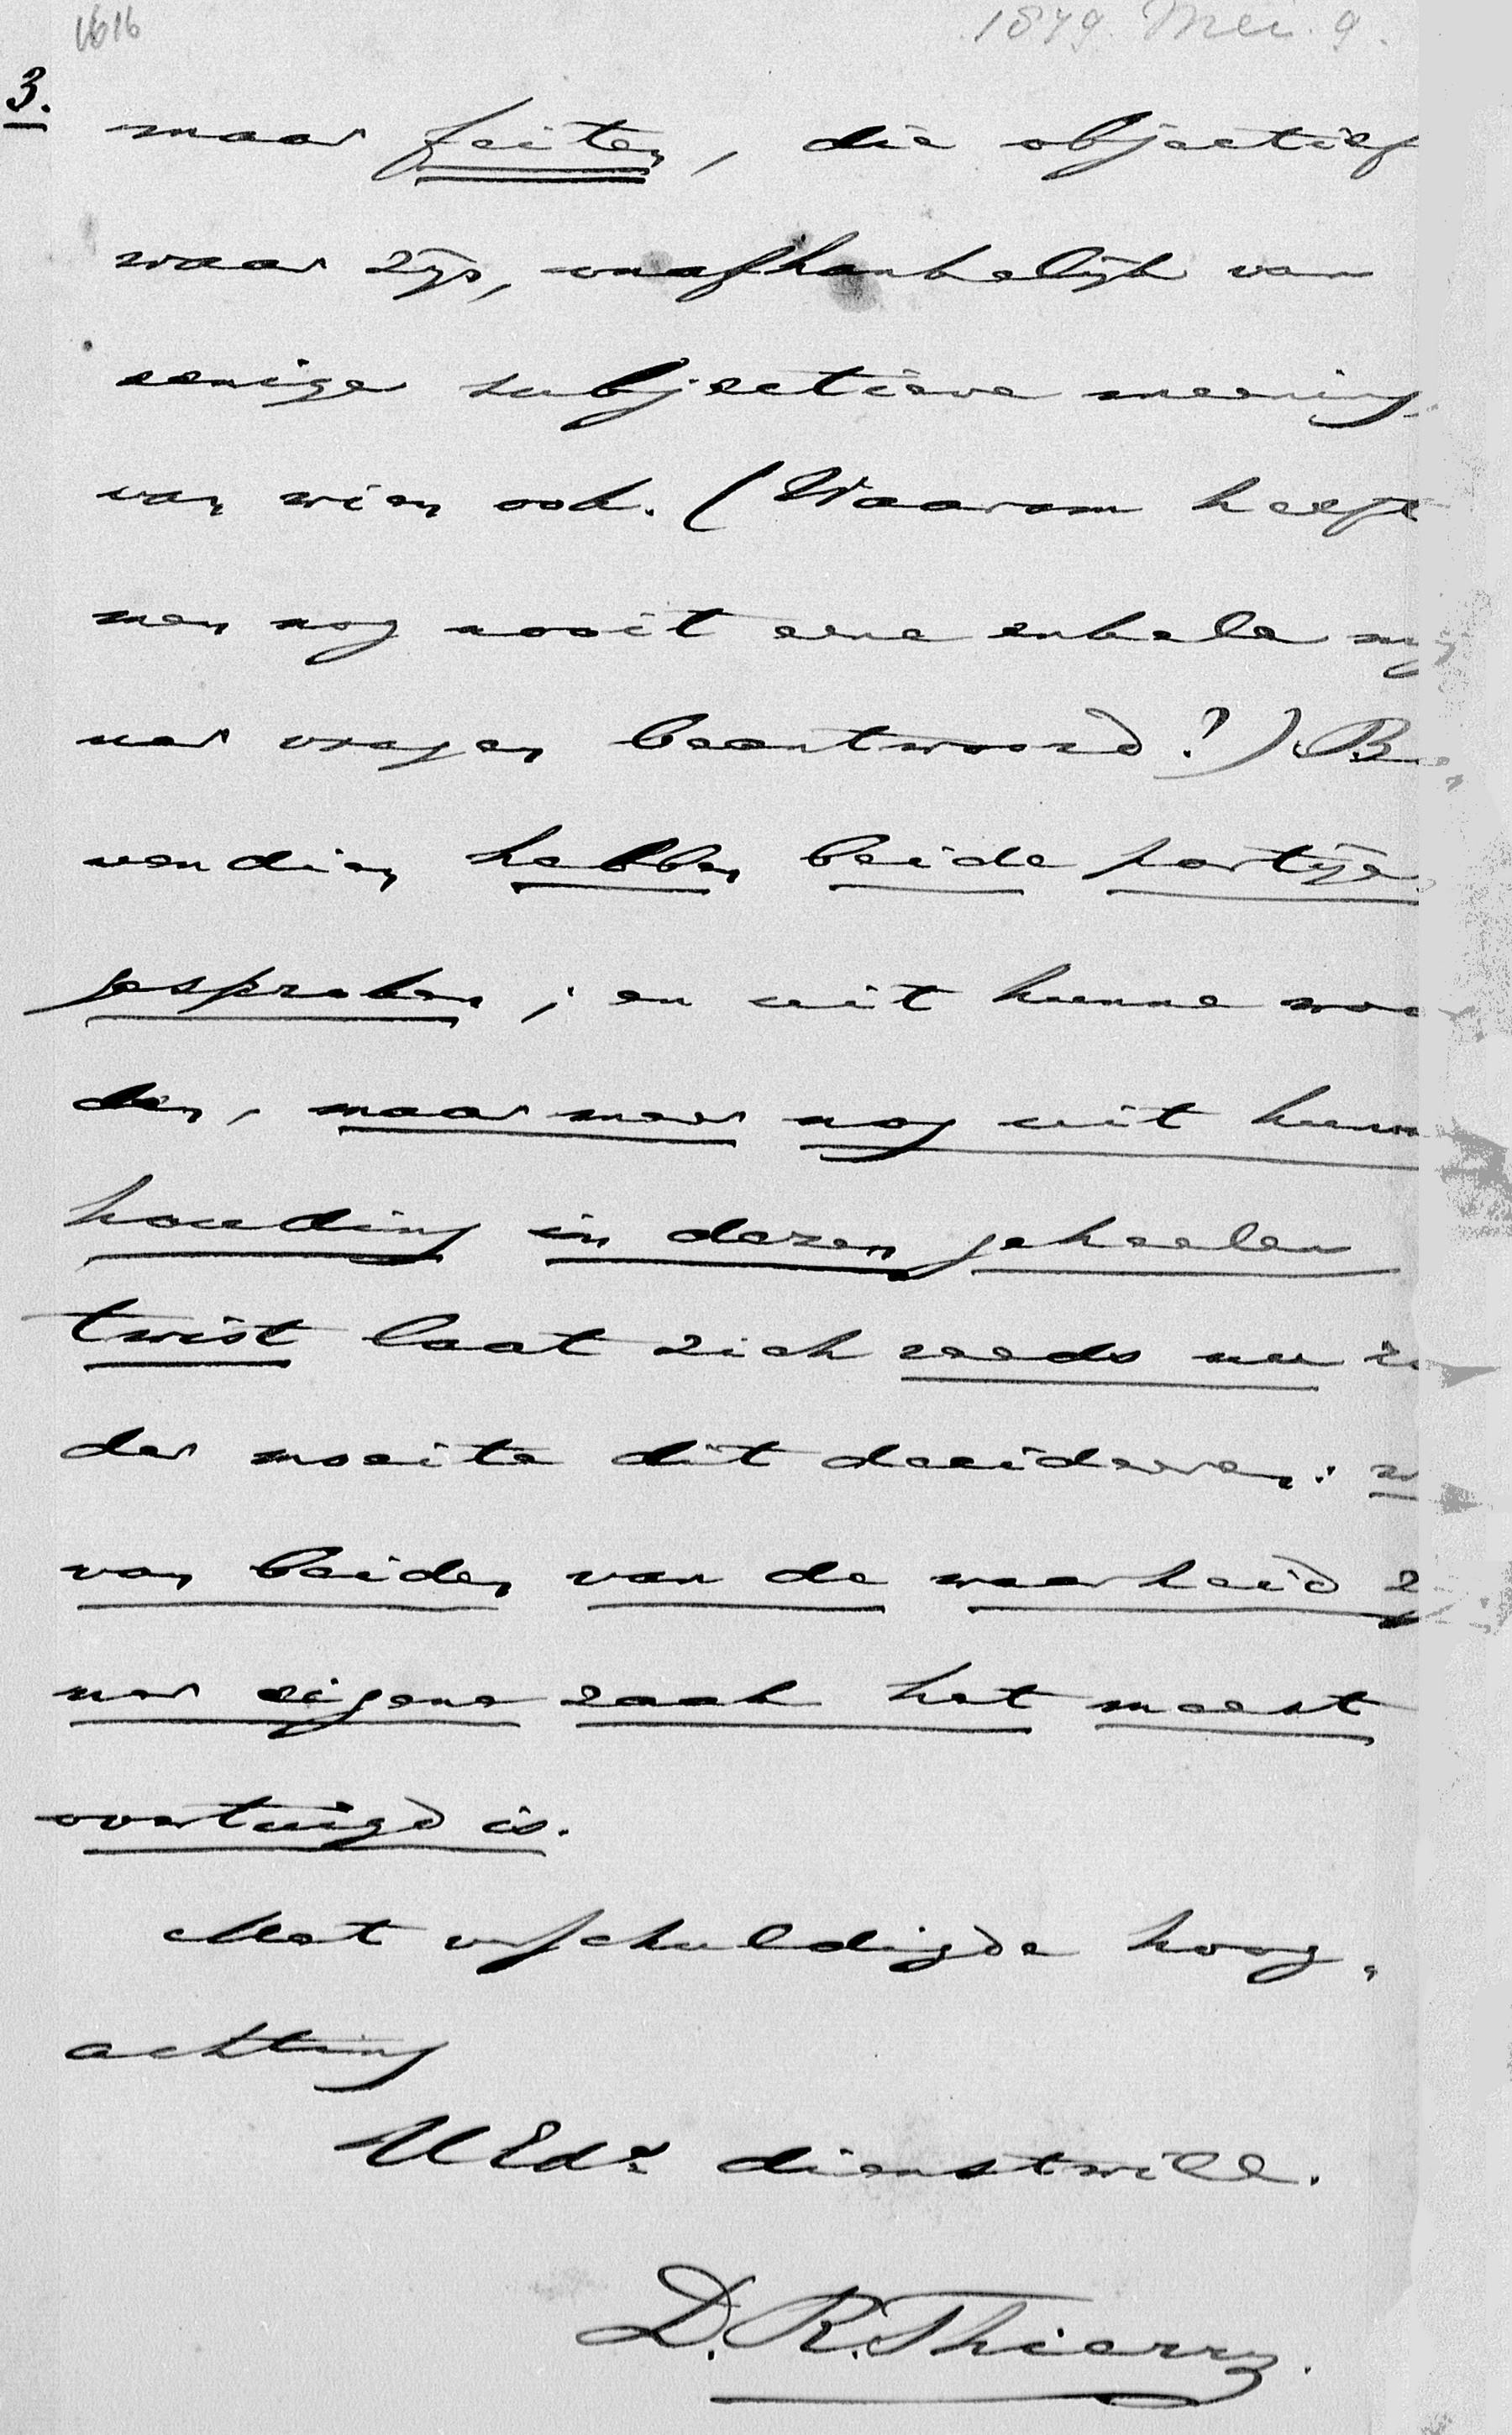 1616
1879. Mei. 9.
3.
maar feiten, die objectief
waar zijn, onafhankelijk van
eenige subjectieve meening
van wien ook. (Waarom heeft
men nog nooit eene enkele mij
ner vragen beantwoord?). Bo
vendien hebben beide partijen
gesproken; en uit hunne woo
den, maar meer nog uit hunne
houding in dezen geheelen
twist laat zich reeds nu zo
der moeite dit decideeren: w
van beiden van de waarheid z
ner eigene zaak het meest
overtuigd is.
Met verschuldigde hoog,
achting
UEdr. dienstwill.
D. R. Thierry.